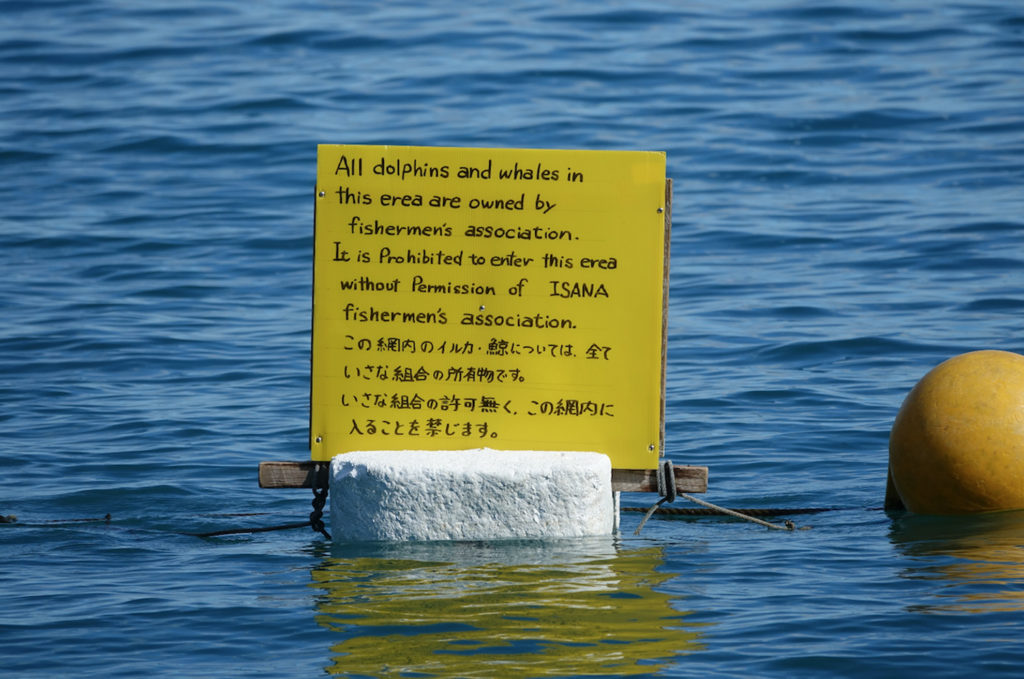 All dolphins and whales in
this erea are owned by
fishermen's association.
It is Prohibited to enter this erea
without Permission of ISANA
fishermen's association.
この網内のイルカ・鯨については、全て
いさな組合の所有物です。
いさな組合の許可無く、この網内に
入ることを禁じます。